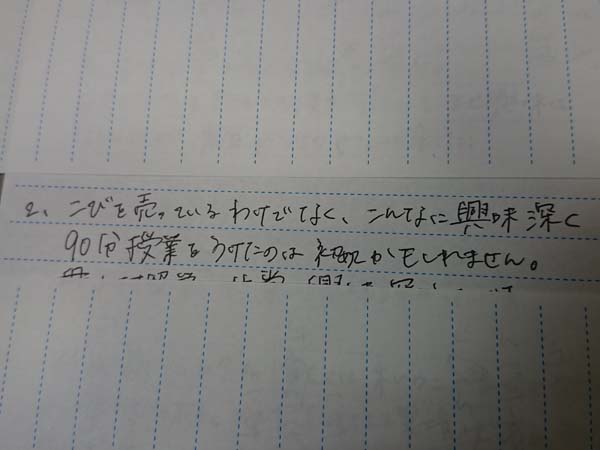 2、こびを売っているわけでなく、こんなに興味深く
90分授業をうけたのは初めてかもしれません。